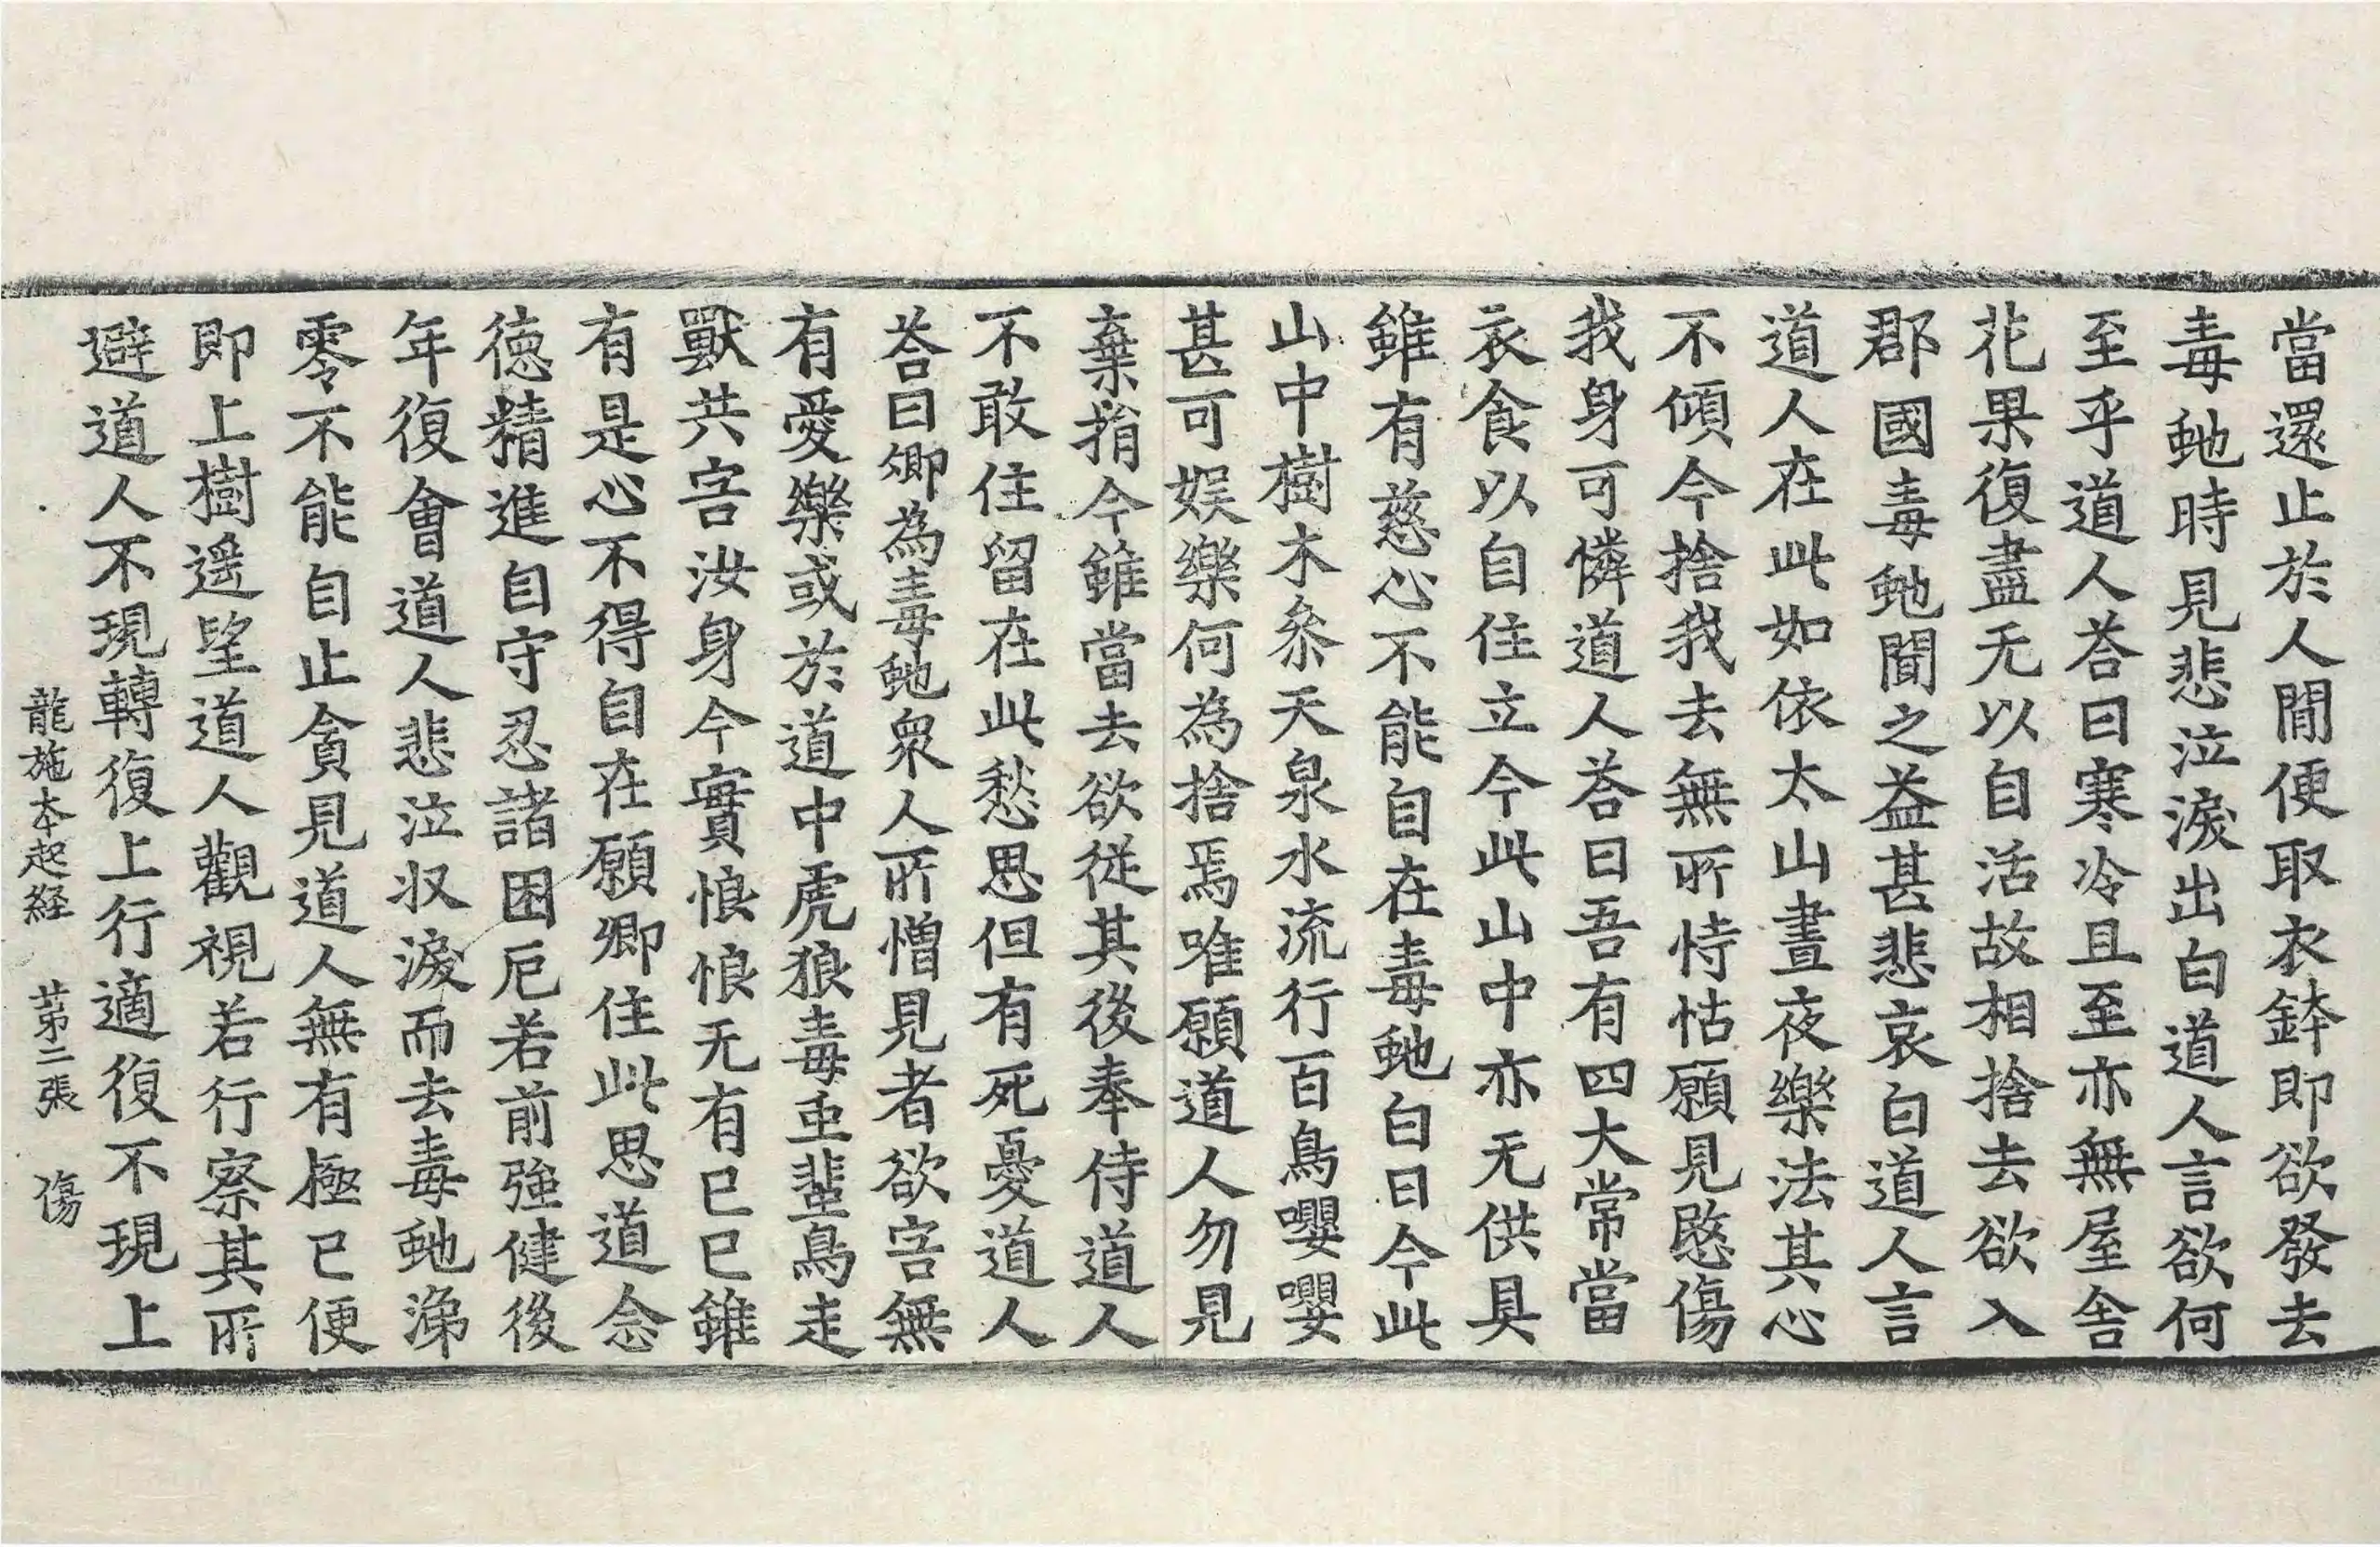 當還止於人閒便取衣鉢即欲發去
毒虵時見悲泣淚出白道人言欲何
至乎道人荅曰寒冷且至亦無屋舍
花果復盡无以自活故相捨去欲入
郡國毒虵聞之益甚悲哀白道人言
道人在此如依太山晝夜樂法其心
不傾今捨我去無所恃怙願見愍傷
我身可憐道人荅曰吾有四大常當
衣食以自住立今此山中亦无供具
雖有慈心不能自在毒虵白曰今此
山中樹木叅天泉水流行百鳥嚶嚶
甚可娛樂何為捨焉唯願道人勿見
棄捐今雖當去欲従其後奉侍道人
不敢住留在此愁思但有死憂道人
荅曰卿為毒虵衆人所憎見者欲害無
有愛樂或於道中虎狼毒䖝蜚鳥走
獸共害汝身今實悢悢无有已已雖
有是心不得自在願卿住此思道念
徳精進自守忍諸困厄若前強健後
年復會道人悲泣収淚而去毒虵涕
零不能自止貪見道人無有極已便
即上樹遥望道人觀視若行察其所
避道人不現轉復上行適復不現上
龍施本起経 苐二張 傷